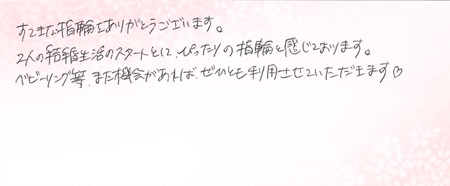 すてきな指輪をありがとうございます。
2人の結婚生活のスタートとして、ぴったりの指輪と感じております。
ベビーリング等、また機会があれば、ぜひとも利用させていただきます♡